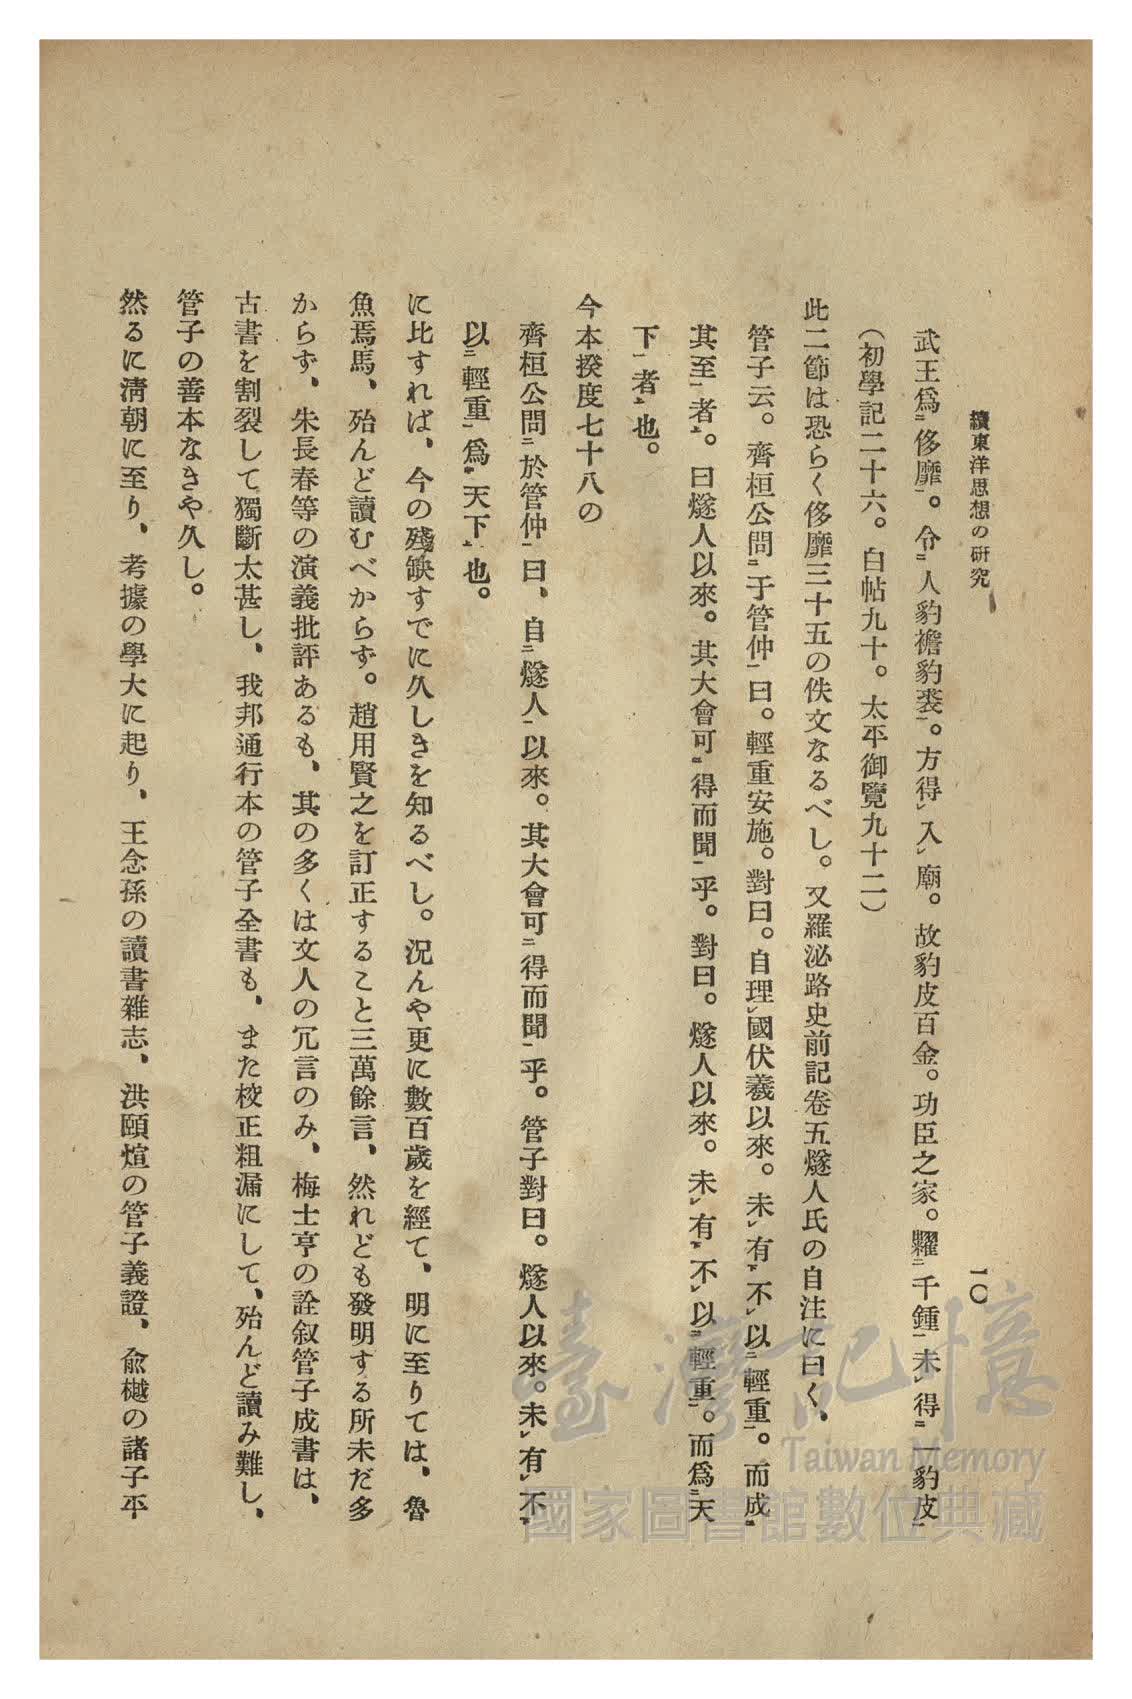 續東洋思想の研究
一〇
武王爲㆓侈靡㆒。令㆓人豹襜豹裘㆒。方得㆑入㆑廟。故豹皮百金。功臣之家。糶㆓千鍾㆒未㆑得㆓一豹皮㆒
（初學記二十六。白帖九十。太平御覽九十二）
此二節は恐らく侈靡三十五の佚文なるべし。又羅泌路史前記卷五燧人氏の自注に曰く、
管子云。齊桓公問㆓于管仲㆒曰。輕重安施。對曰。自理㆑國伏羲以來。未㆑有㆘不㆑以㆓輕重㆒。而成㆗
其至㆖者㆖。曰燧人以來。其大會可㆓得而聞㆒乎。對曰。燧人以來。未㆑有㆘不㆑以㆓輕重㆒。而爲㆗天
下㆖者㆖也。
今本揆度七十八の
齊桓公問㆓於管仲㆒曰、自㆓燧人㆒以來。其大會可㆓得而聞㆒乎。管子對曰。燧人以來。未㆑有㆘不㆘
以㆓輕重㆒爲㆗天下㆖也。
に比すれば、今の殘缺すでに久しきを知るべし。況んや更に數百歲を經て、明に至りては、魯
魚焉馬、殆んど讀むべからず。趙用賢之を訂正すること三萬餘言、然れども發明する所未だ多
からず、朱長春等の演義批評あるも、其の多くは文人の冗言のみ、梅士亨の詮叙管子成書は、
古書を割裂して獨斷太甚し、我邦通行本の管子全書も、また校正粗漏にして、殆んど讀み難し、
管子の善本なきや久し。
然るに淸朝に至り、考據の學大に起り、王念孫の讀書雜志、洪頤煊の管子義證、兪樾の諸子平
臺灣記憶
Taiwan Memory
國家圖書館數位典藏